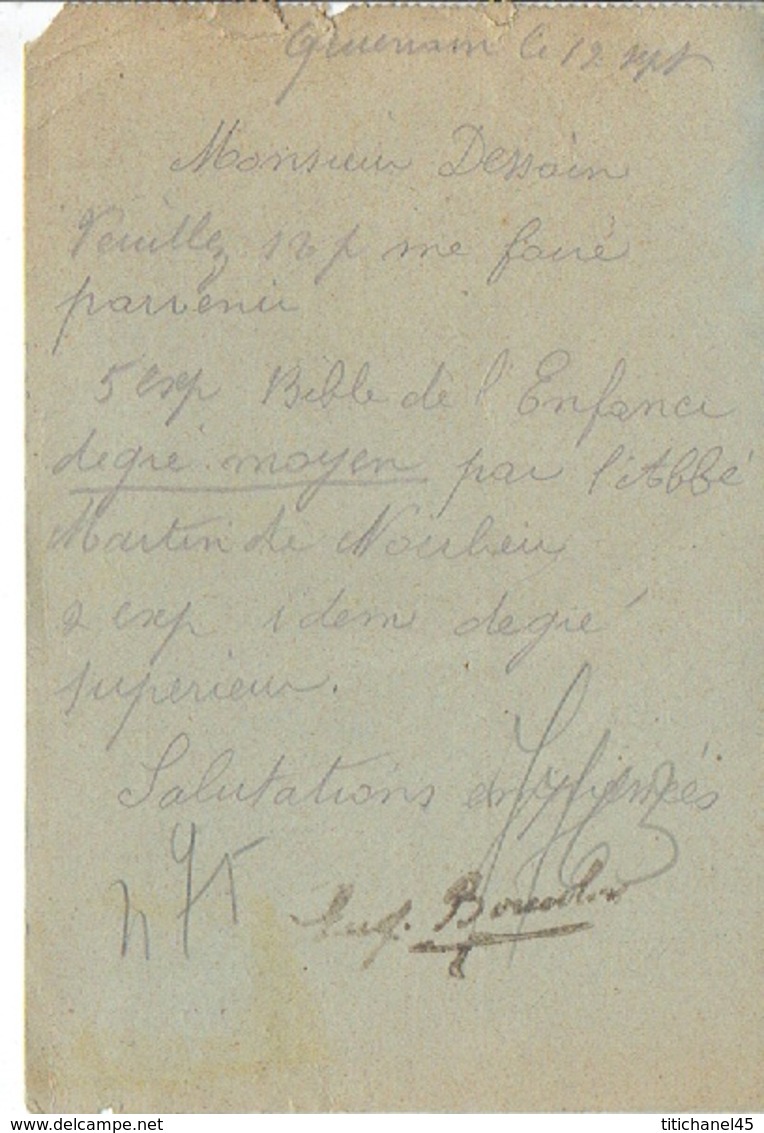 le 12 sept
Monsieur Dessain
Veuillez svp me faire
parvenir
5 exp Bible de l'Enfance
degré moyen par l'Abbé
Martin de Noirlieu
2 exp idem degré
supérieur.
Salutations empressées
475
delcampe.net
titichanel45